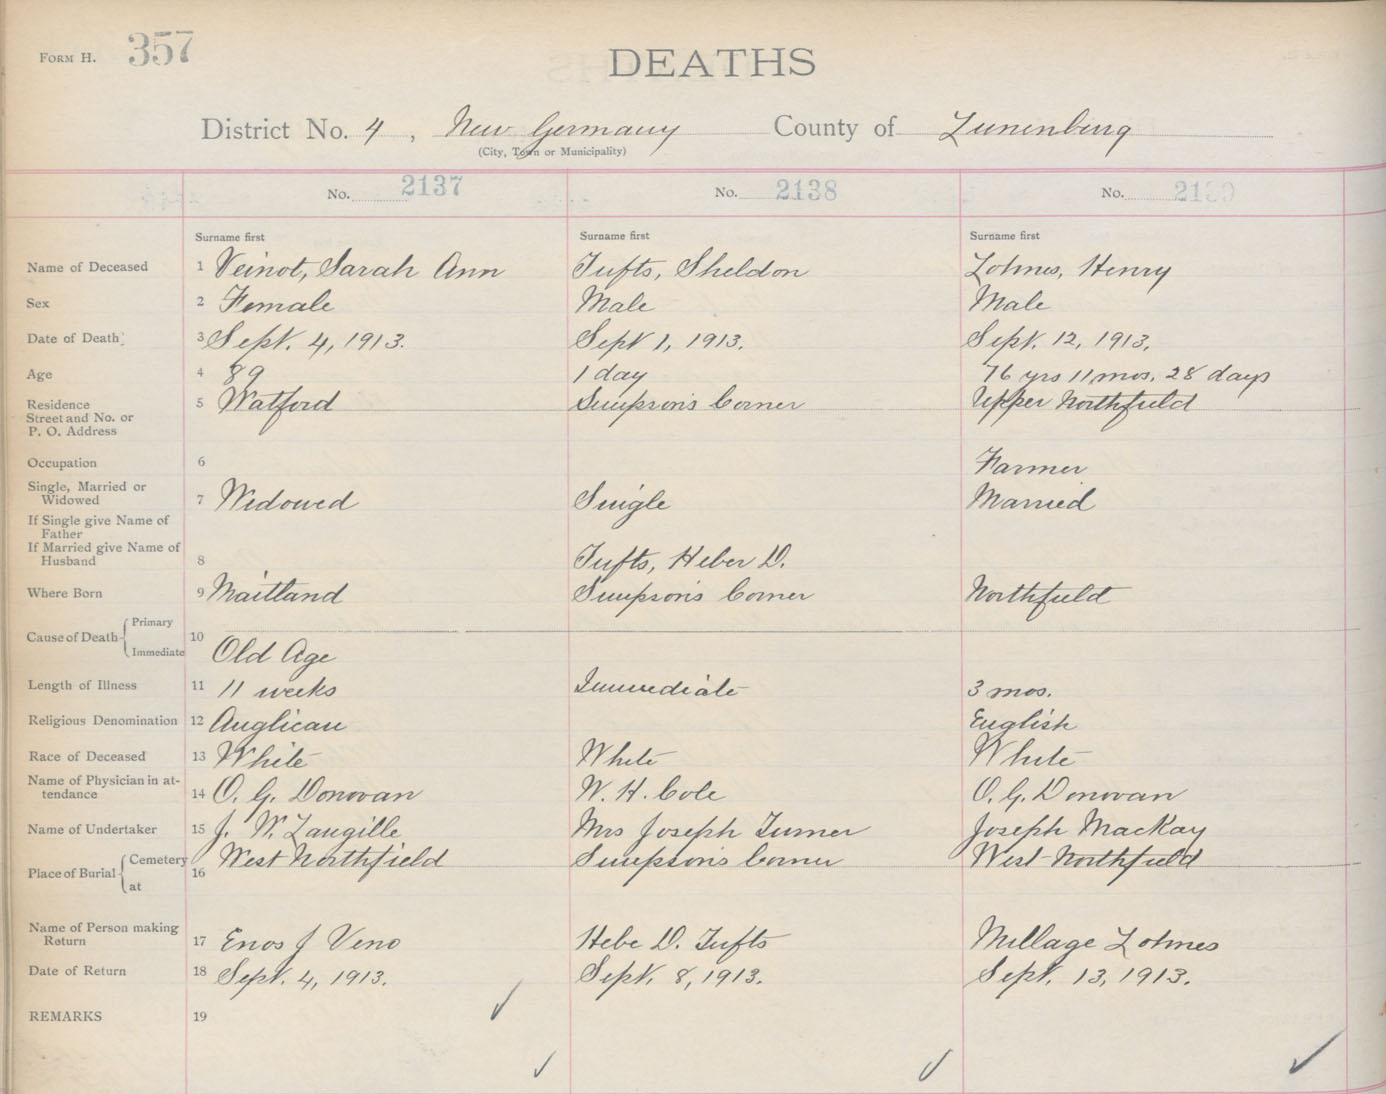 Form H. 357
DEATHS
District No. 4, New Germany County of Lunenburg
(City, Town or Municipality)
No. 2137 No. 2138 No. 2139
Surname first Surname first Surname first
Name of Deceased 1 Veinot, Sarah Ann Tufts, Sheldon Lohnes, Henry
Sex 2 Female Male Male
Date of Death 3 Sept. 4, 1913. Sept 1, 1913. Sept. 12, 1913.
Age 4 89 1 day 76 yrs 11 mos. 28 days
Residence 5 Watford Simpson's Corner Upper Northfield
Street and No. or
P. O. Address
Occupation 6 Farmer
Single, Married or
Widowed 7 Widowed Single Married
If Single give Name of
Father
If Married give Name of
Husband 8 Tufts, Heber D.
Where Born 9 Maitland Simpson's Corner Northfield
Cause of Death Primary 10
Immediate Old Age
Length of Illness 11 11 weeks Immediate 3 mos.
Religious Denomination 12 Anglican English
Race of Deceased 13 White White White
Name of Physician in at-
tendance 14 O. G. Donovan W. H. Cole O. G. Donovan
Name of Undertaker 15 J. W. Langille Mrs Joseph Turner Joseph MacKay
Place of Burial Cemetery 16 West Northfield Simpson's Corner West Northfield
at
Name of Person making
Return 17 Enos J Veno Hebe D. Tufts Millage Lohnes
Date of Return 18 Sept. 4, 1913. Sept. 8, 1913. Sept. 13, 1913.
REMARKS 19